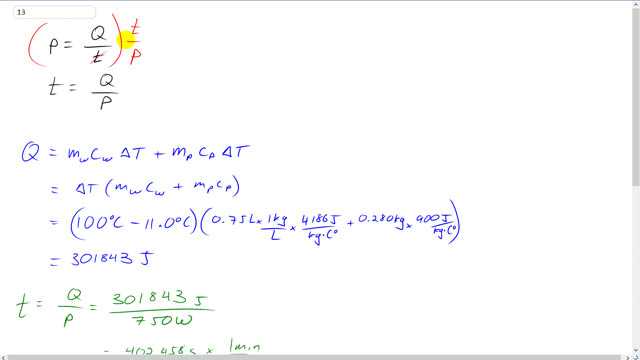 13
( P = Q/t ) t/P
t = Q/P
Q = m_w C_w ΔT + m_p C_p ΔT
= ΔT ( m_w C_w + m_p C_p )
= (100°C - 11.0°C) ( 0.75L × 1kg/L × 4186J/kg·C° + 0.280kg × 900J/kg·C° )
= 301843 J
t = Q/P = 301843 J / 750W